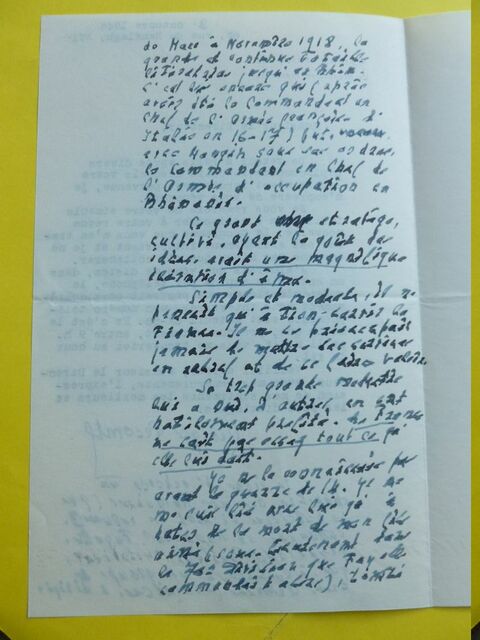 de Mars à Novembre 1918, la
grande et
jusqu'au Rhin.
C'est lui encore qui (après
avoir été le Commandant en
Chef de l'Armée française d'
Italie en 16-17) fut,
avec Mangin sous ses ordres,
le Commandant en Chef de
l'Armée d'occupation en
Rhénanie.
Ce grand stratège,
cultivé, ayant le goût des
idées, avait une magnifique
d'âme.
Simple et modeste, il ne
pensait qu'à bien servir la
France. Il ne se préoccupait
jamais de mettre ses services
en relief et de se faire valoir.
Sa trop grande modestie
lui a nui. D'autres en ont
habilement profité. La France
ne sait pas assez tout ce qu'
elle lui doit.
Je ne le connaissais pas
avant la guerre de 14. Je me
me suis lié avec lui qu'à
dater de la mort de mon
ami (sous-lieutenant dans
la 70e Division que Fayolle
commandait alors), tombé